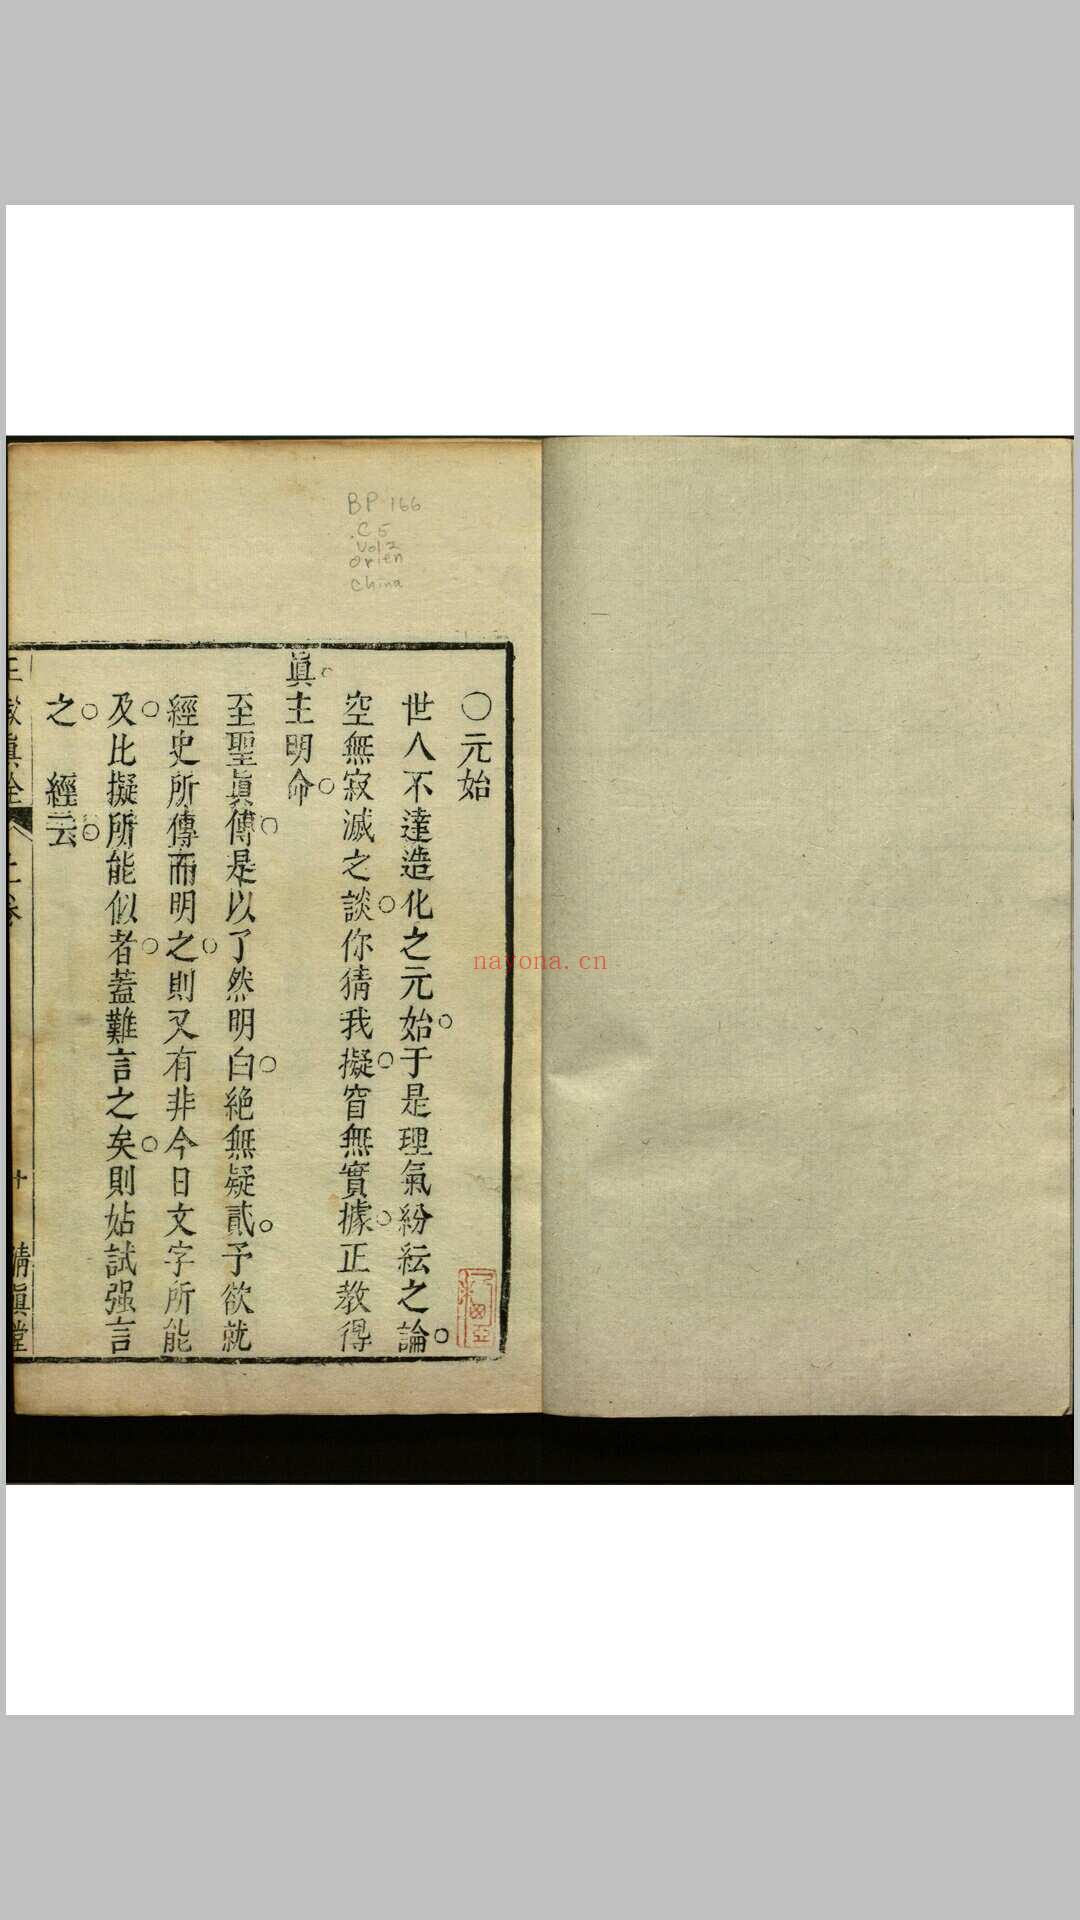 BP 166
.C5
Vol 2
Orien
China
〇元始
世人不達造化之元始。于是理氣紛紜之論。
空無寂滅之談。你猜我擬。窅無實據。正教得
眞。主明命。
至聖眞傳。是以了然明白。絶無疑貳。予欲就
經史所傳而明之。則又有非今日文字所能
及。比擬所能似者。蓋難言之矣。則姑試强言
之。 經云。
正教眞詮 上卷 十 清眞堂
nayona.cn